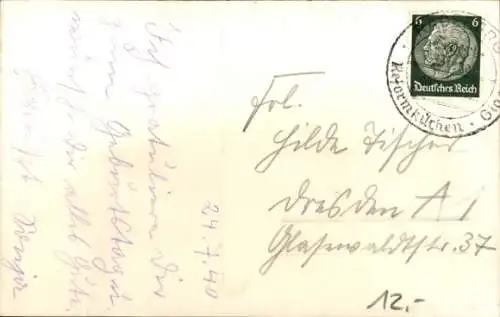 Ich gratuliere Dir
zum Geburtstag u.
wünsch Dir alles Gute.
24.7.40
6 6
Deutsches Reich
Reformküchen
Frl.
Hilde Tischer
Dresden A 1
Glasewaldtstr. 37
12,-